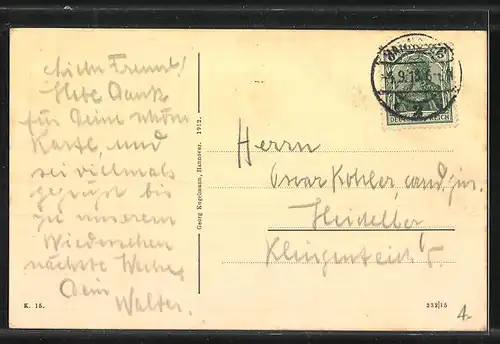 Lieber Freund!
Habe Dank
für Deine schöne
Karte, und
sei vielmals
gegrüsst bis
zu unserem
Wiedersehen
nächste Woche,
Dein
Walter.
K. 15.
Georg Kugelmann, Hannover. 1912.
DEUTSCHES REICH
Herrn
Oscar Kohler, cand. jur.
Heidelber
Klingenteich
232|15
4.